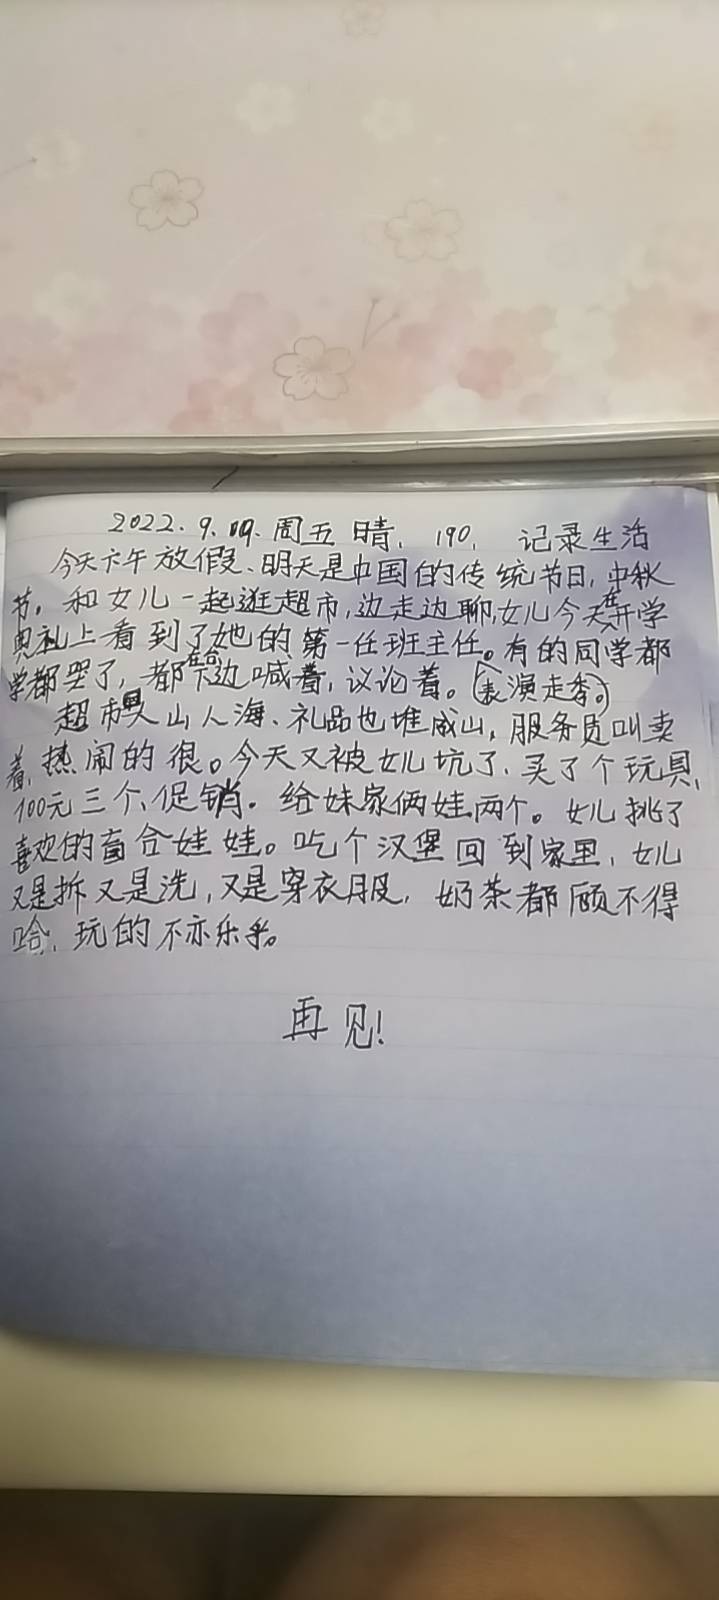 2022.9.09.周五 晴, 190, 记录生活
今天下午放假、明天是中国的传统节日,中秋
节。和女儿一起逛超市,边走边聊,女儿今天在开学
典礼上看到了她的第一任班主任。有的同学都
学都哭了,都在台下边喊着,议论着。(表演走秀。)
超市里人山人海、礼品也堆成山,服务员叫卖
着,热闹的很。今天又被女儿坑了、买了个玩具,
100元三个、促销。给妹家俩娃两个。女儿挑了
喜欢的盲合娃娃。吃个汉堡回到家里,女儿
又是拆又是洗,又是穿衣服,奶茶都顾不得
哈,玩的不亦乐乎。
再见!